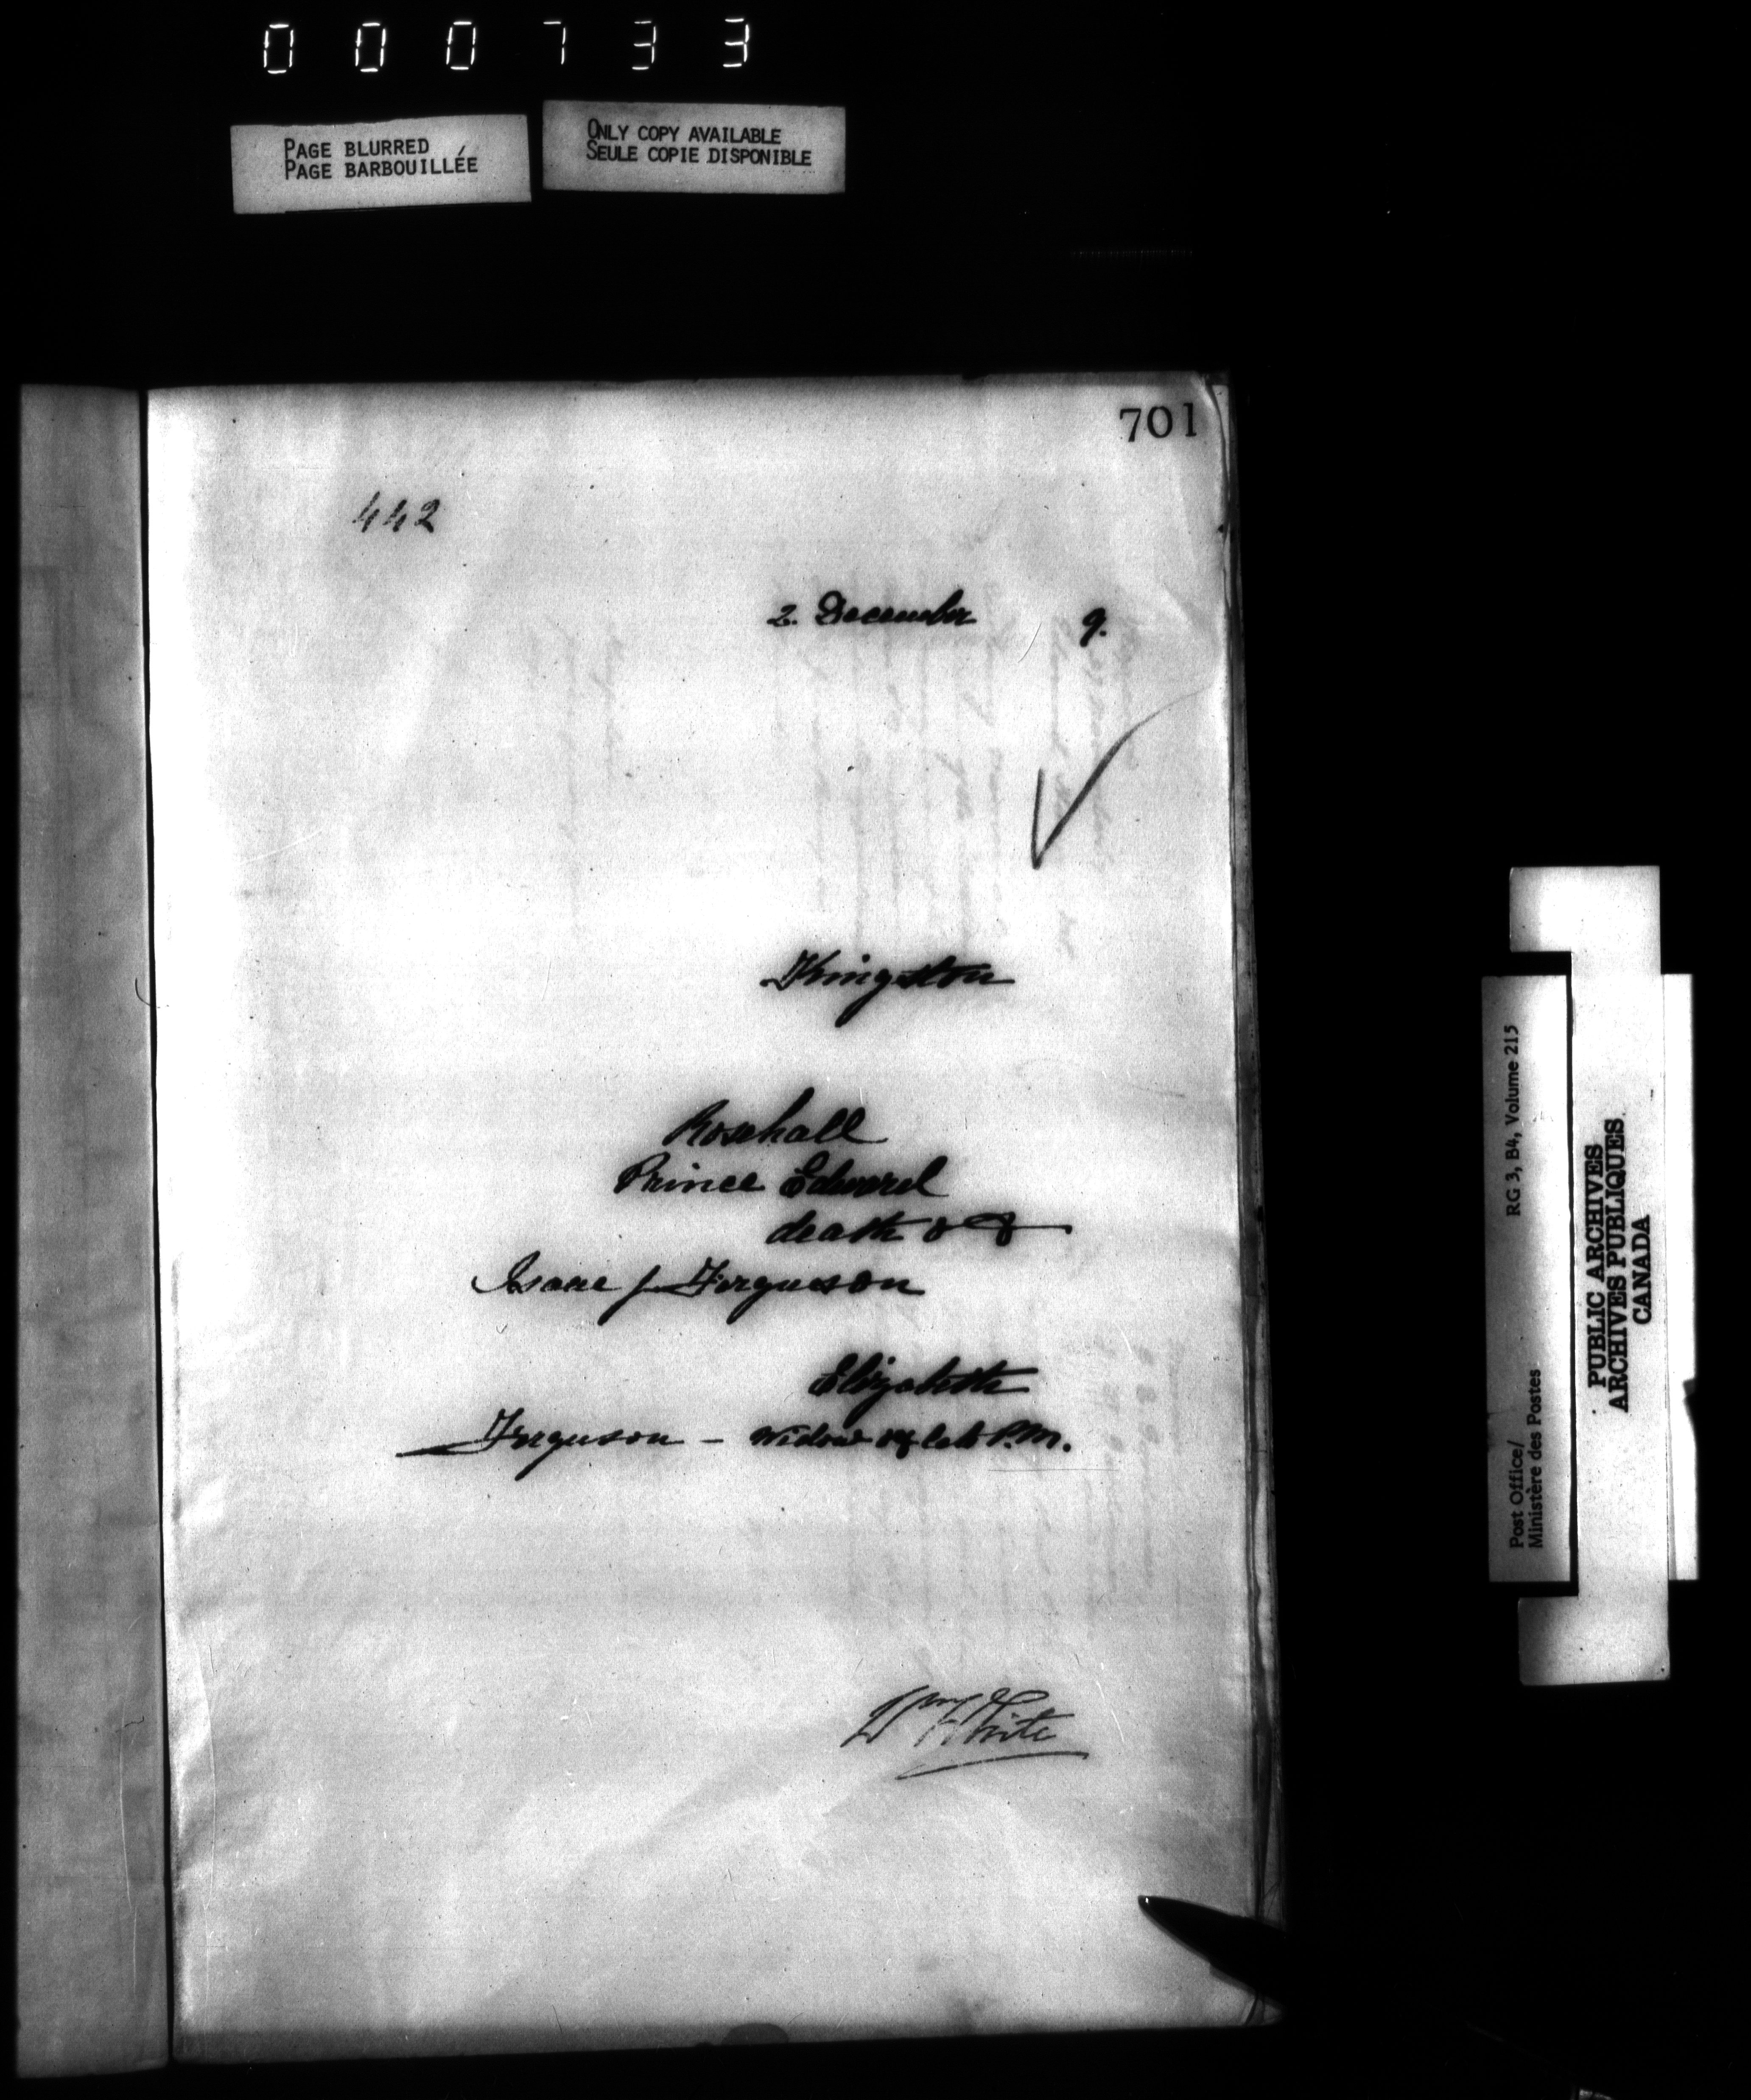 000733
PAGE BLURRED
PAGE BARBOUILLÉE
ONLY COPY AVAILABLE
SEULE COPIE DISPONIBLE
701
442
2. December 9.
Kingston
Rosehall
Prince Edward
death of
Isaac J. Ferguson
Elizabeth
Ferguson – widow of late P.M.
Wm White
Post Office/
Ministère des Postes
RG 3, B4, Volume 215
PUBLIC ARCHIVES
ARCHIVES PUBLIQUES
CANADA